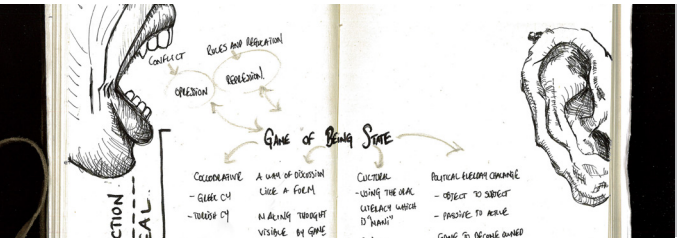 CONFLICT
RULES AND REGULATION
OPRESSION
REPRESSION
GAME OF BEING STATE
COLLOBRATIVE
- GREEK CY
- TURKISH CY
A WAY OF DISCUSSION
LIKE A FORM
MAKING THOUGHT
VISIBLE BY GAME
CULTURAL
- USING THE ORAL
LITERACY WHICH
IS "MANI"
POLITICAL EVERDAY CHALANGE
- OBJECT TO SUBJECT
- PASSIVE TO ACTIVE
GAME TO BECOME OWNED